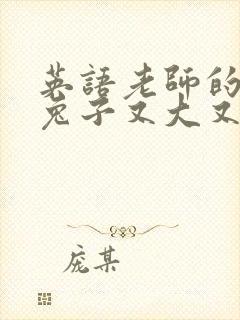 英語老師的
兔子又大又
庞某